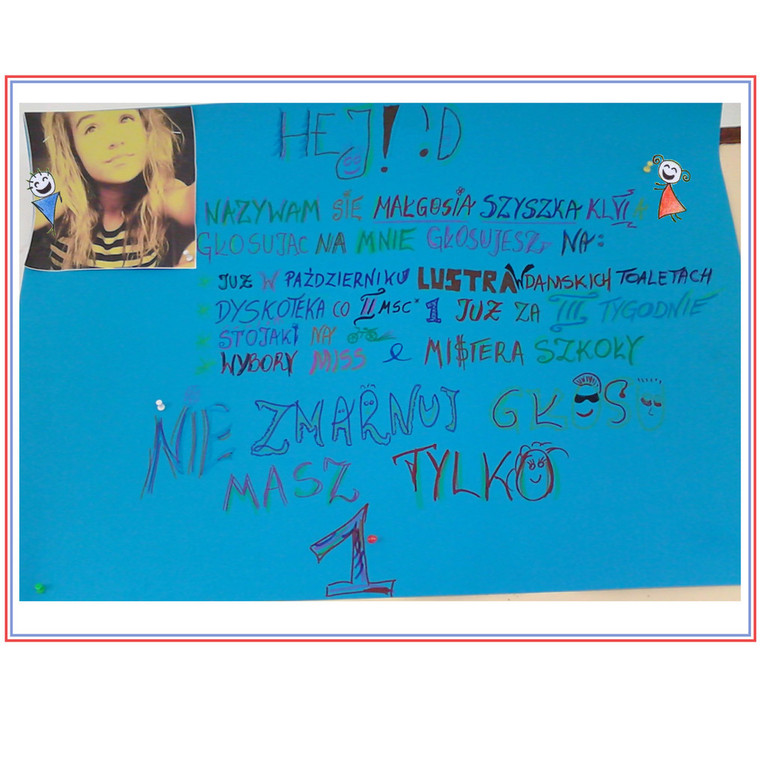 HEJ! :D
NAZYWAM SIĘ MAŁGOSIA SZYSZKA KL VI
GŁOSUJĄC NA MNIE GŁOSUJESZ NA:
JUŻ W PAŹDZIERNIKU LUSTRA W DAMSKICH TOALETACH
DYSKOTEKA CO II MSC* 1 JUŻ ZA III TYGODNIE
STOJAKI NA
WYBORY MISS e MI$TERA SZKOŁY
NIE ZMARNUJ GŁOSU
MASZ TYLKO
1